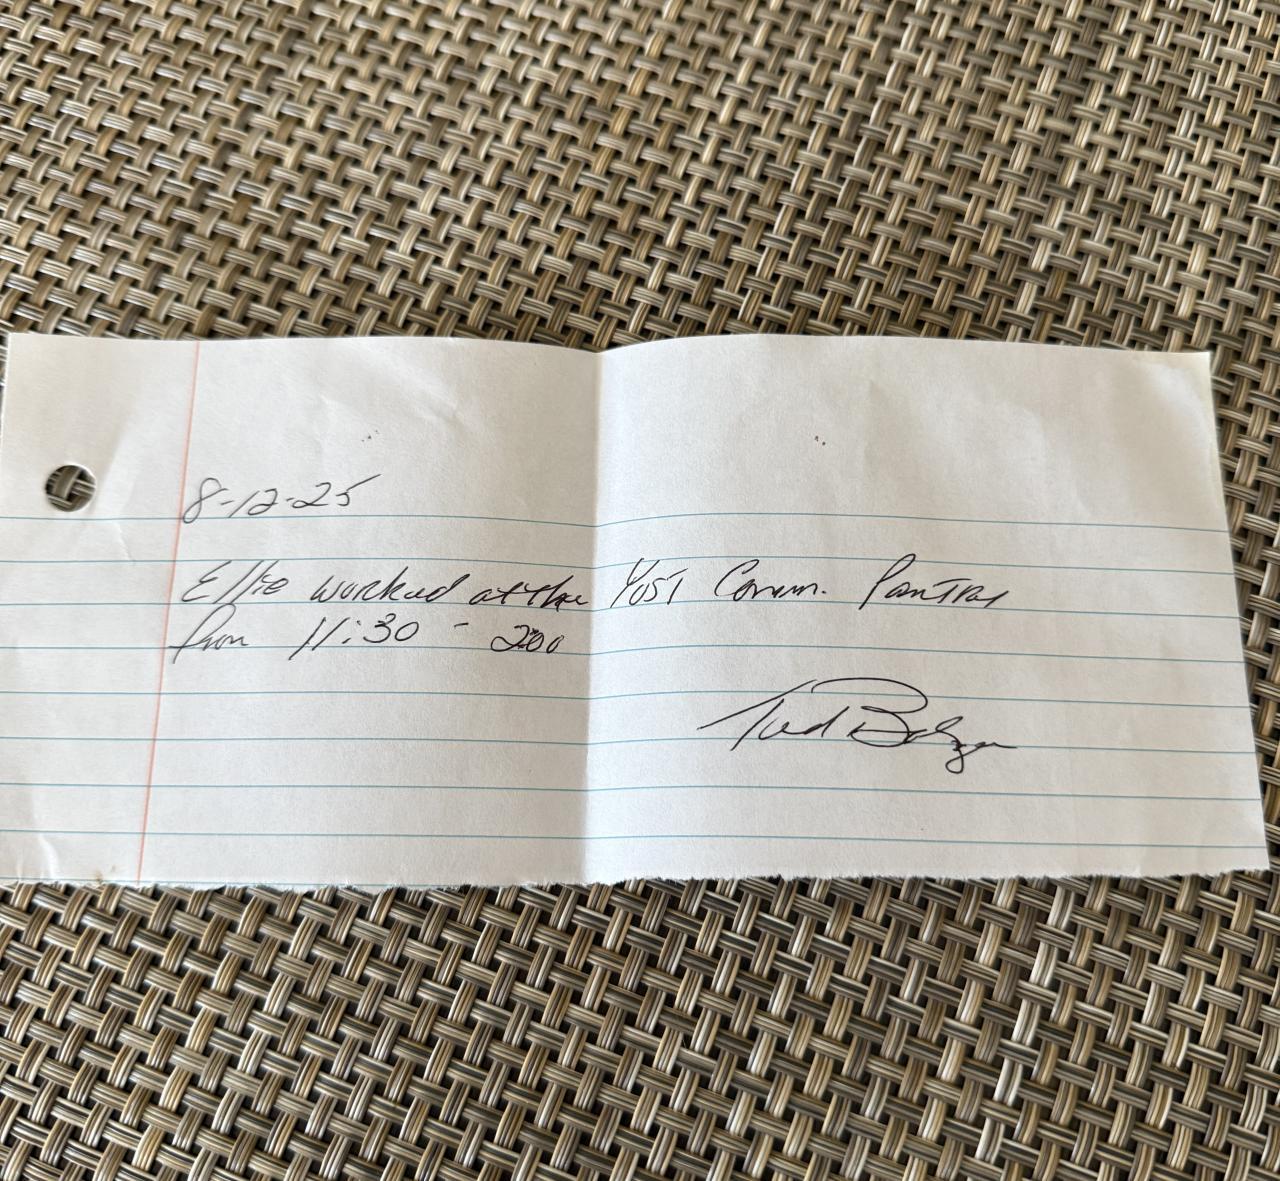 8-12-25
Ellie worked at the Yost Comm. Pantry
from 11:30 - 200